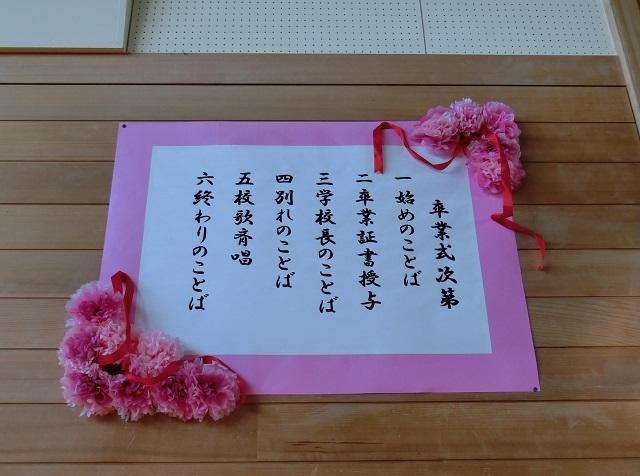 卒業式次第
一 始めのことば
二 卒業証書授与
三 学校長のことば
四 別れのことば
五 校歌斉唱
六 終わりのことば